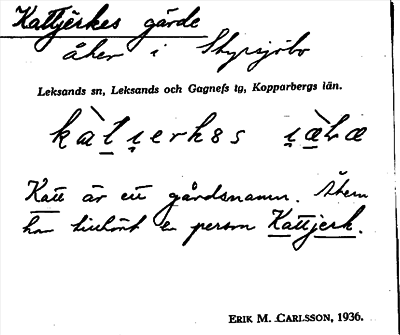 Kattjerkes gärde
åker i Styrsjöbo
Leksands sn, Leksands och Gagnefs tg, Kopparbergs län.
Katt är ett gårdsnamn. Åkern
har tillhört en person Kattjerk.
ERIK M. CARLSSON, 1936.